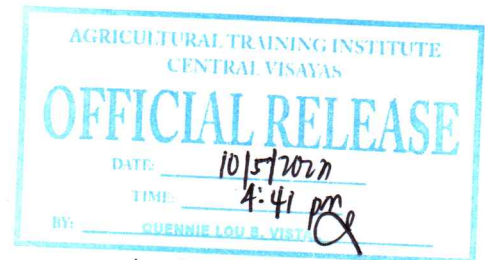 AGRICULTURAL TRAINING INSTITUTE
CENTRAL VISAYAS
OFFICIAL RELEASE
DATE: 10/5/202
TIME: 4:41 pm
BY: QUENNIE LOU B. VIST